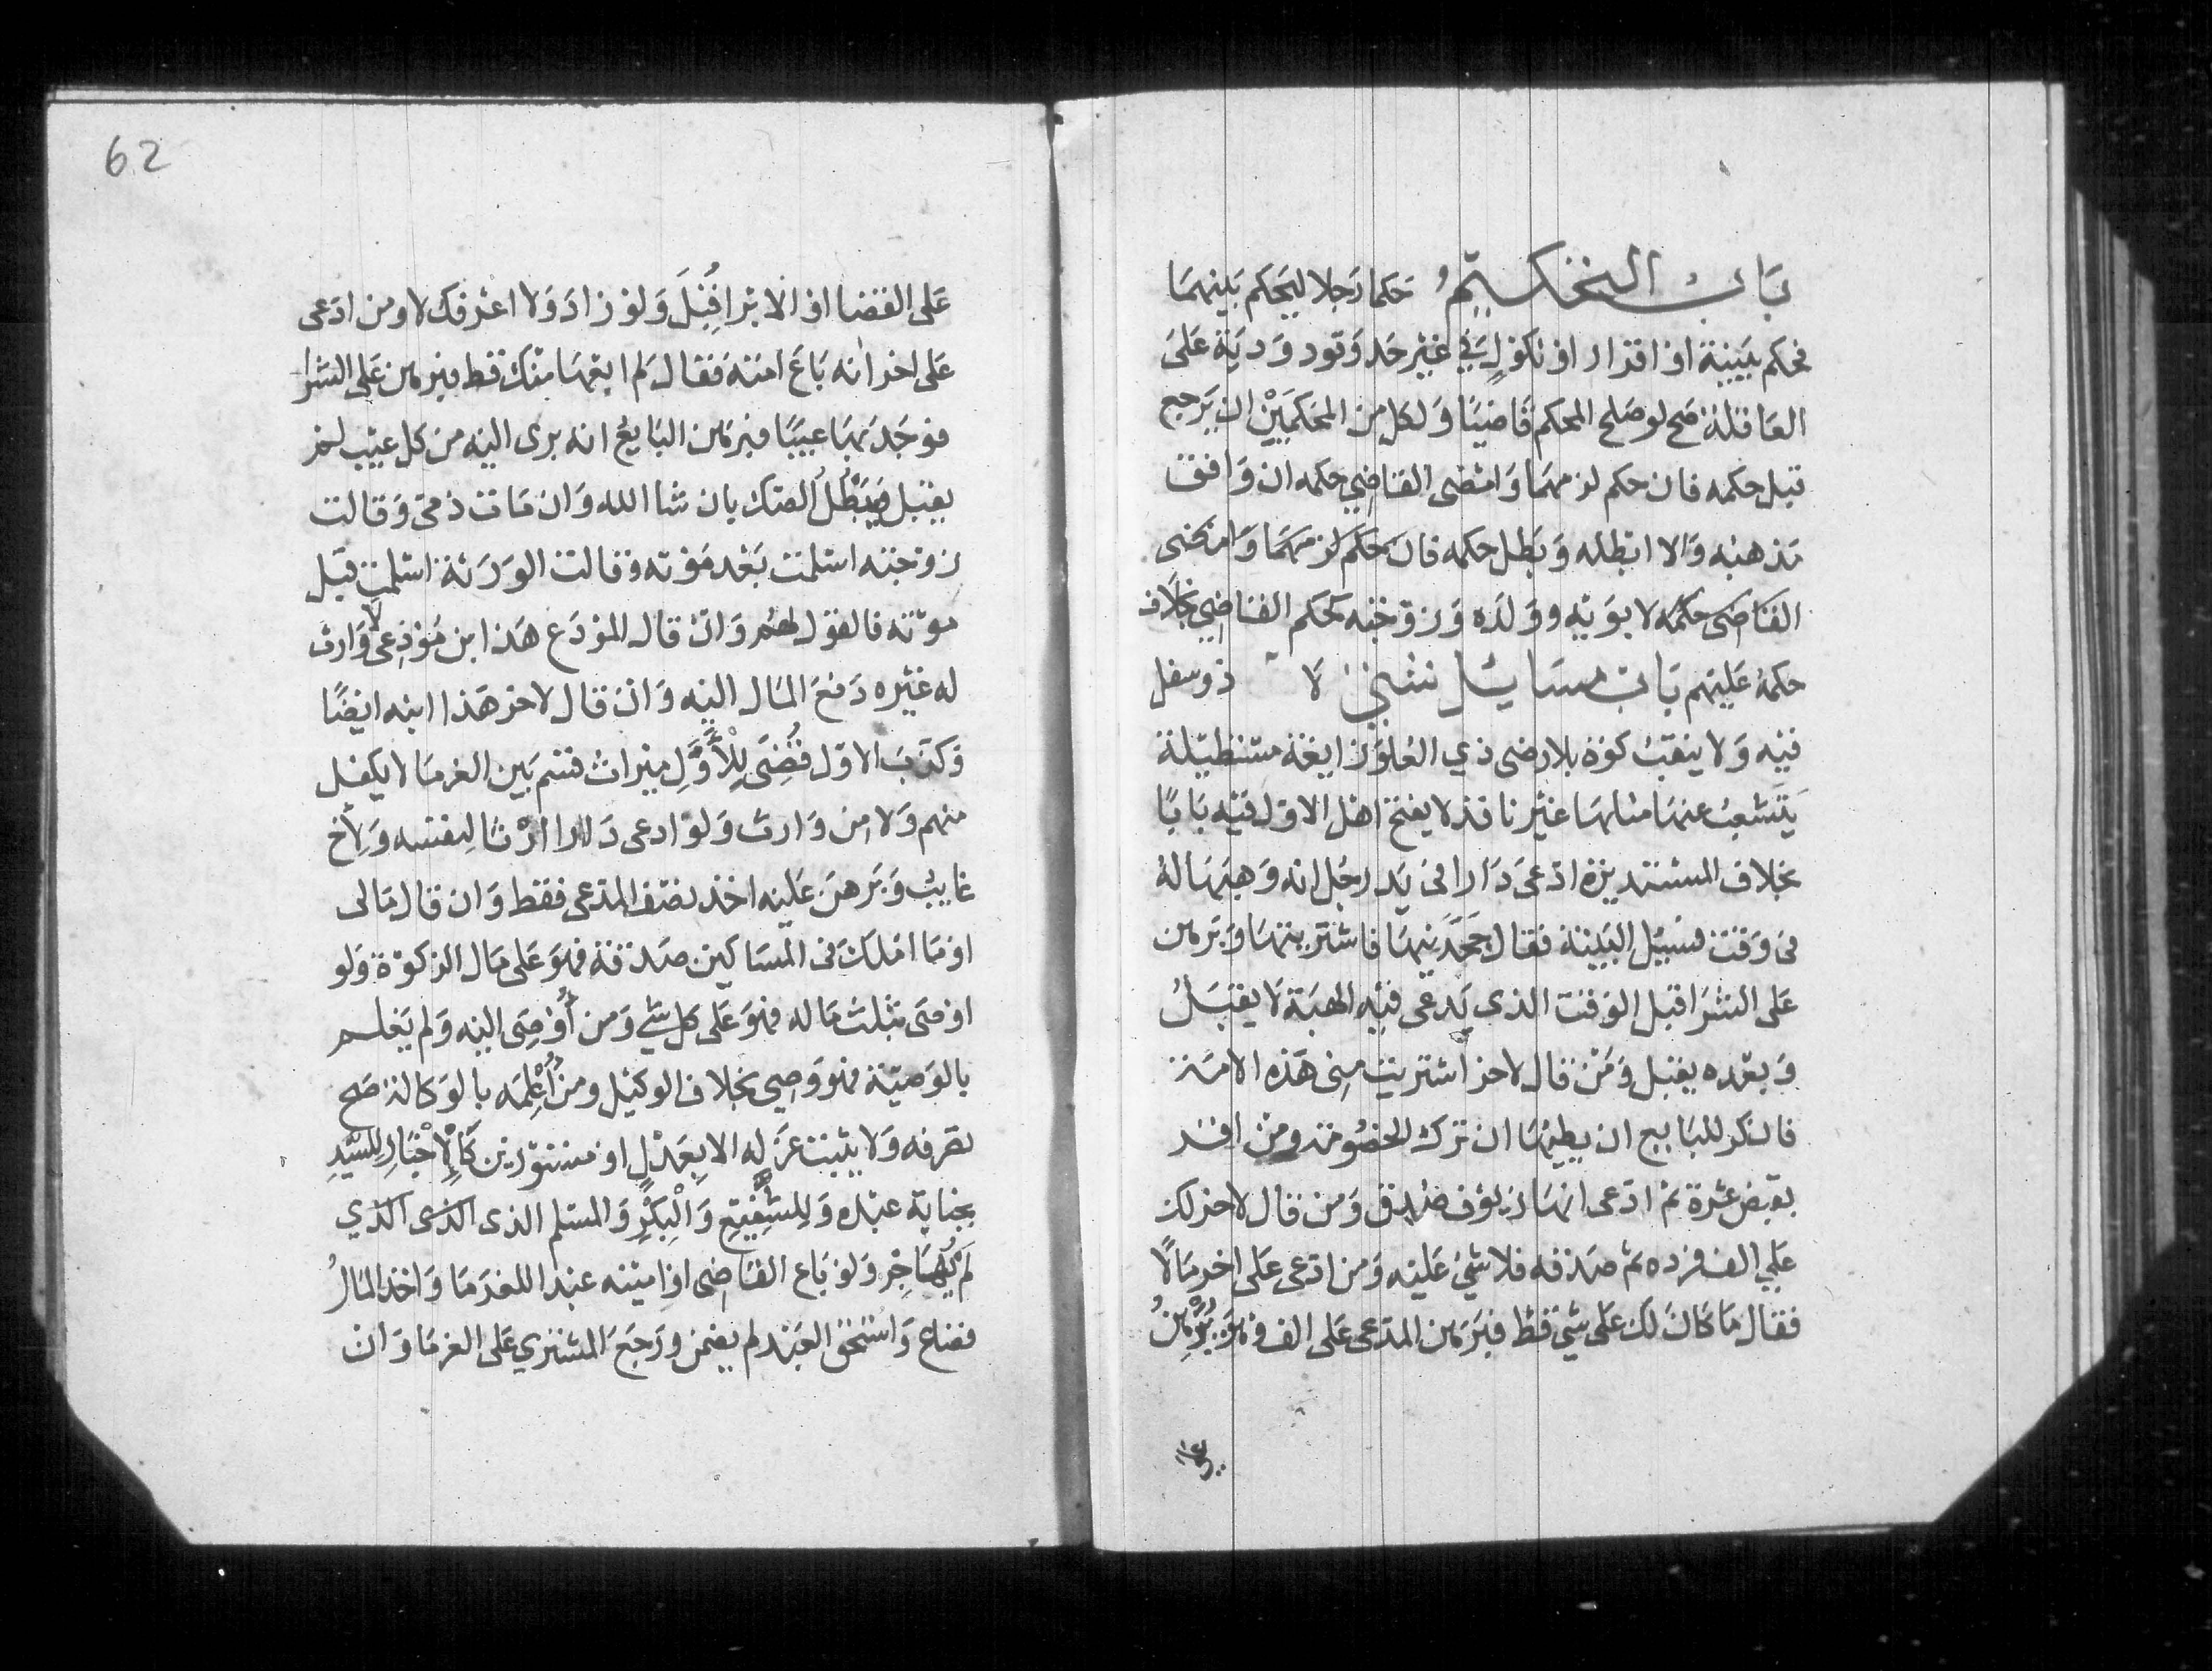 بَابُ التحكيم حَكما رَجلا ليَحكم بَينهمَا
فحكم ببَينة او اقرار او نكولٍ في غير حَد وَقود وَدية عَلىَ
العَاقلة صَح لو صَلح المحكم قاضيًا وَلكل من المحكمَيْن ان يَرجع
قبل حكمه فان حكم لزمهمَا وَامضى القاضي حكمه ان وَافق
مَذهبه وَالا ابطله وَبَطل حكمه فان حَكم لزمهمَا وَامضى
القَاضى حكمه لابوَيه وَوَلَده وَزوجته كحكم القاضي بخلاف
حكمه عَليهم بَاب مسَايل شتى لا ذو سفل
فيه وَلا ينقبُ كوة بلا رضى ذي العُلوّ زايغة مستطيلة
يَتَشعبُ عنهَا مثلهَا غير نافذ لا يفتح اهل الاول فيه بَابًا
بخلاف المستديرة ادّعىَ دَارا في يَد رجُل انه وَهبَهَا لهُ
في وَقت فسُيل البَينة فقال جَحَدَنيهَا فاشتريتهَا وَبَرهن
عَلى الشرَا قبل الوَقت الذى يَدعى فيه الهبَة لا يقبَلُ
وَبعده يقبل وَمَن قال لاخر اشتريت منى هَذه الامَة
فانكر للبَايع ان يطيهَا ان ترك الخصُومَة ومن اقر
بقبض عشرة ثم ادّعى انهَا زيوف صُدق وَمن قال لاخر لك
عَلي الف فرده ثم صَدقه فلا شيَ عَليه وَمن ادّعى عَلى اخر مَالًا
فقال مَا كانَ لك عَلى شي قط فبَرهَن المدّعى عَلى الف وَهوَ بَرْهَنُ
62
عَلى القضا او الابرا قُبِلَ وَلوْ زادَ وَلا اعْرفك لا ومن ادَعى
عَلى اخر انه بَاعَ امَته فقال لم ابعهَا منك قط فبرهن عَلى الشرا
فوجَدَ بهَا عيبًا فبرهَن البَايعُ انه برى اليه من كل عيب لم
يقبل وَيَبْطُلُ الصك بان شا الله وَان مَات ذمى وَقالت
زوجته اسلمت بَعْد مَوته وقالت الوَرَثة اسْلمت قبل
موته فالقول لهم وَان قال المودَع هَذا ابن مُوْدِعى لا وَارث
له غيره دَفعَ المَال اليه وَانْ قال لاخر هَذا ابنه ايضًا
وَكذّبَ الاوّل قُضِىَ لِلْأَوَّلِ ميرَاث قسم بَين الغرمَا لا يكفل
منهم وَلا من وَارث وَلوْ ادعى دَارا ارْثًا لنفسه وَلِأخ
غايبٌ وَبَرهنَ عَليه اخذ نصف المدّعى فقط وَان قال مَالى
اوْ مَا امْلكُ في المسَاكين صَدقة فهوَ عَلى مَال الزكوٰة وَلو
اوصَى بثلث مَاله فهوَ عَلى كل شي وَمن أُوصِىَ اليه وَلم يَعلم
بالوَصيّة فهو وَصي بخلاف الوكيل ومن أُعْلِمَه بالوَكالة صَح
تصَرفه وَلا يثبت عَزله الا بِعَدْلٍ او مستورَين كَالْإِخْبَارِ لِلسّيدِ
بجناية عبْده وَلِلشَّفِيْعِ وَالْبِكْرِ وَالمسلم الذى الذى الذي
لَمْ يُهَاجِرْ وَلوْ بَاع القاضى اوْ امينه عبْدا للغرَمَا وَاخذ المَالُ
فضاع وَاستُحق العَبْد لم يضمن ورَجَعَ المشتري عَلى الغرمَا وَان